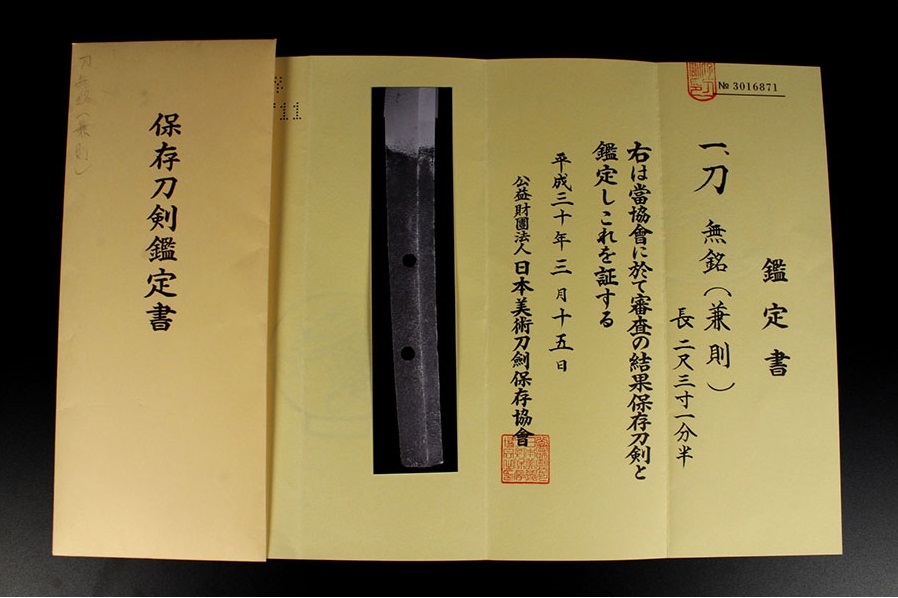 鑑定書
№ 3016871
一、刀 無銘（兼則）
長 二尺三寸一分半
右は當協會に於て審査の結果保存刀剣と
鑑定しこれを証する
平成三十年三月十五日
公益財團法人 日本美術刀劍保存協會
保存刀剣鑑定書
刀 無銘（兼則）